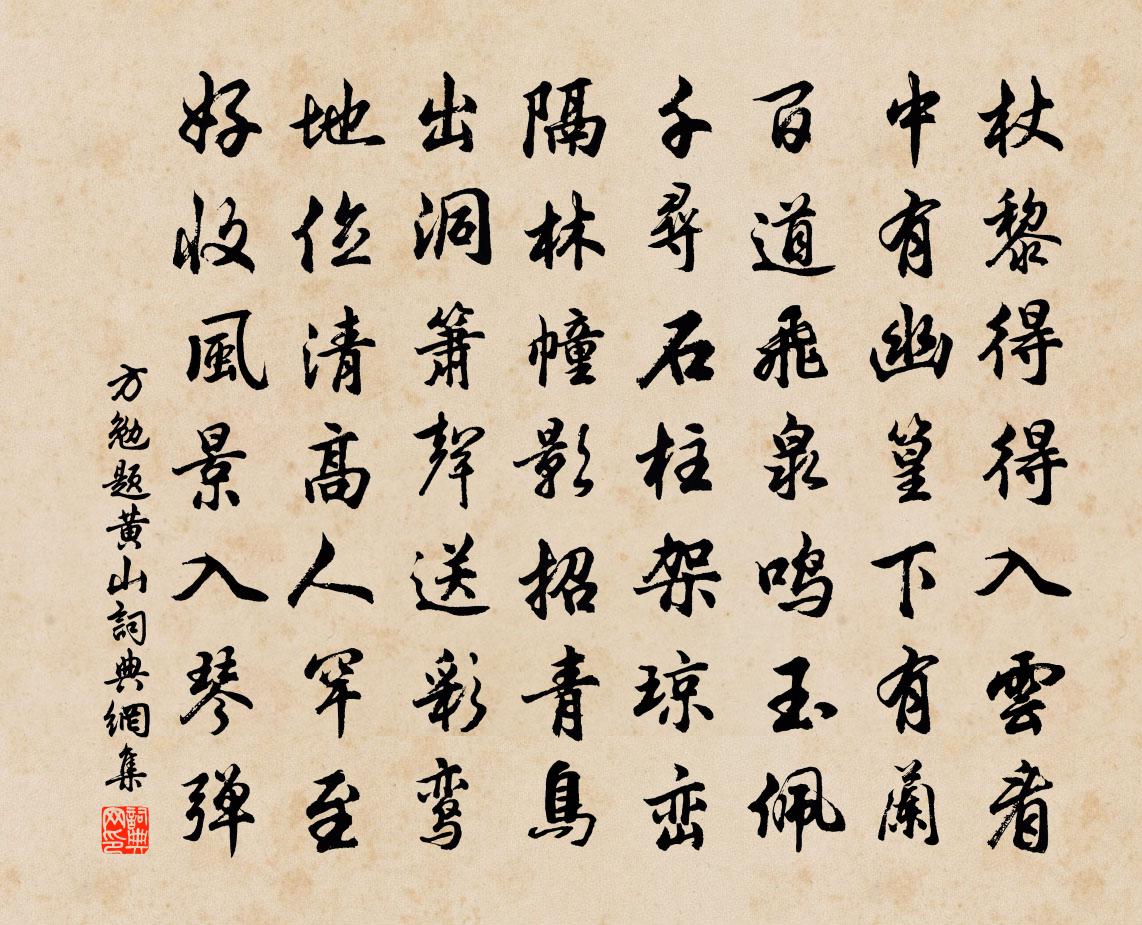 杖黎得得入雲看
中有幽篁下有蘭
百道飛泉鳴玉佩
千尋石柱架琼峦
隔林幢影招青鳥
出洞簫聲送彩鸾
地位清高人罕至
好收風景入琴弹
方勉题黄山詞典網集
詞典网印